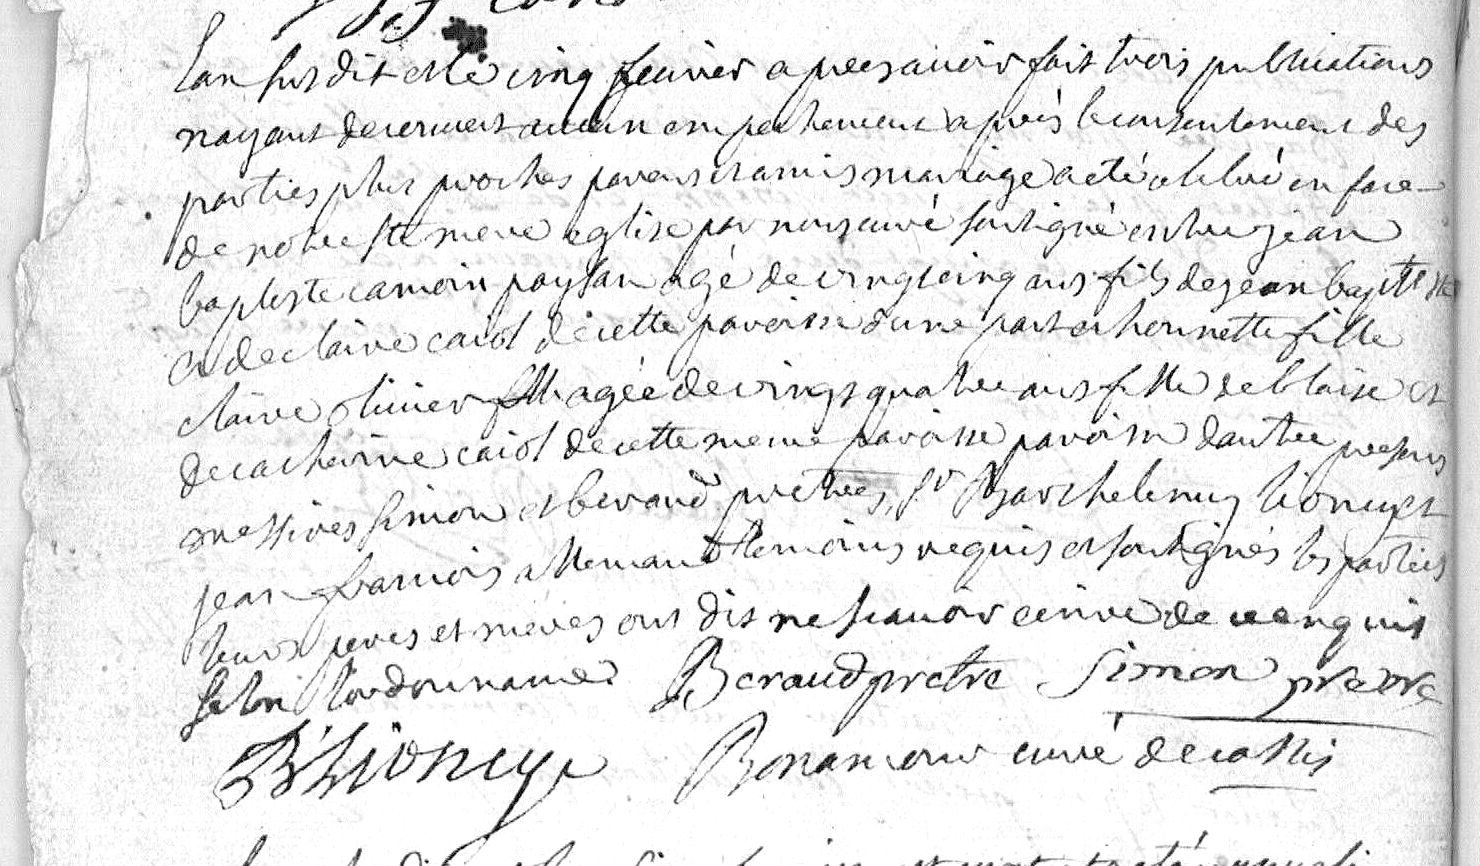 lan susdit et le cinq feuvier apres avoir fait trois publications
nayant decouvert aucun empechement apres le consentement des
parties plus proches parens et amis mariage a eté celebré en face
de notre ste mere eglise par nous curé soussigné entre jean
baptiste camoin paysan agé de vingt cinq ans fils de jean bapte
et de claire caiol de cette paroisse dune part et honnette fille
claire olivier fille agée de vingt quatre ans fille de blaise et
de catherine caiol de cette meme paroisse paroisse dautre presens
messires simon et beraud pretres, sr Barthelemy lioncy et
jean francois allemand temoins requis et soussignés les parties
leurs peres et meres ont dit ne scavoir ecrire de ce enquis
selon lordonnance Beraud pretre Simon pretre
B Lioncy Bonamour curé de cassis